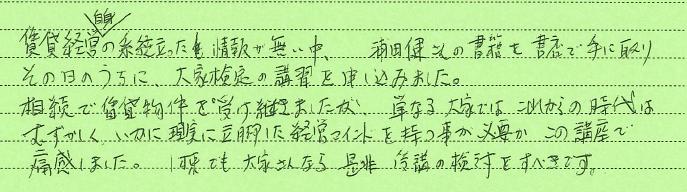 自身
賃貸経営の系統立った情報が無い中、浦田健さんの書籍を書店で手に取り
その日のうちに、大家検定の講習を申し込みました。
相続で賃貸物件を受け継ぎましたが、単なる大家ではこれからの時代は
むずかしく、いかに現実に立脚した経営マインドを持つ事が必要かこの講座で
痛感しました。1棟でも大家さんなら是非受講の検討をすべきです。